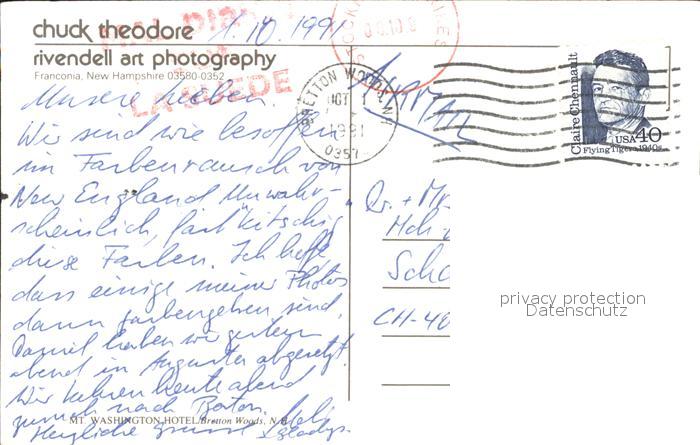 chuck theodore 1.10.1991
rivendell art photography
Franconia, New Hampshire 03580-0352
LA SUEDE
Unsere Lieben
Wir sind wie besoffen
im Farbenrausch von
New England. Unwahr-
scheinlich, fast kitschig
diese Farben. Ich hoffe,
dass einige meiner Photos
dann farbengehen sind.
Daniel haben wir gestern
abend in Augusta abgesetzt.
Wir kehren heute abend
zurück nach Boston.
Herzliche Grüsse
Gladys
MT. WASHINGTON HOTEL/Bretton Woods, N.H.
BRETTON WOODS N.H.
OCT 1
1991
0357
Claire Chennault
USA 40
Flying Tigers, 1940s
Dr. + Mr
Sch
CH-40
privacy protection
Datenschutz